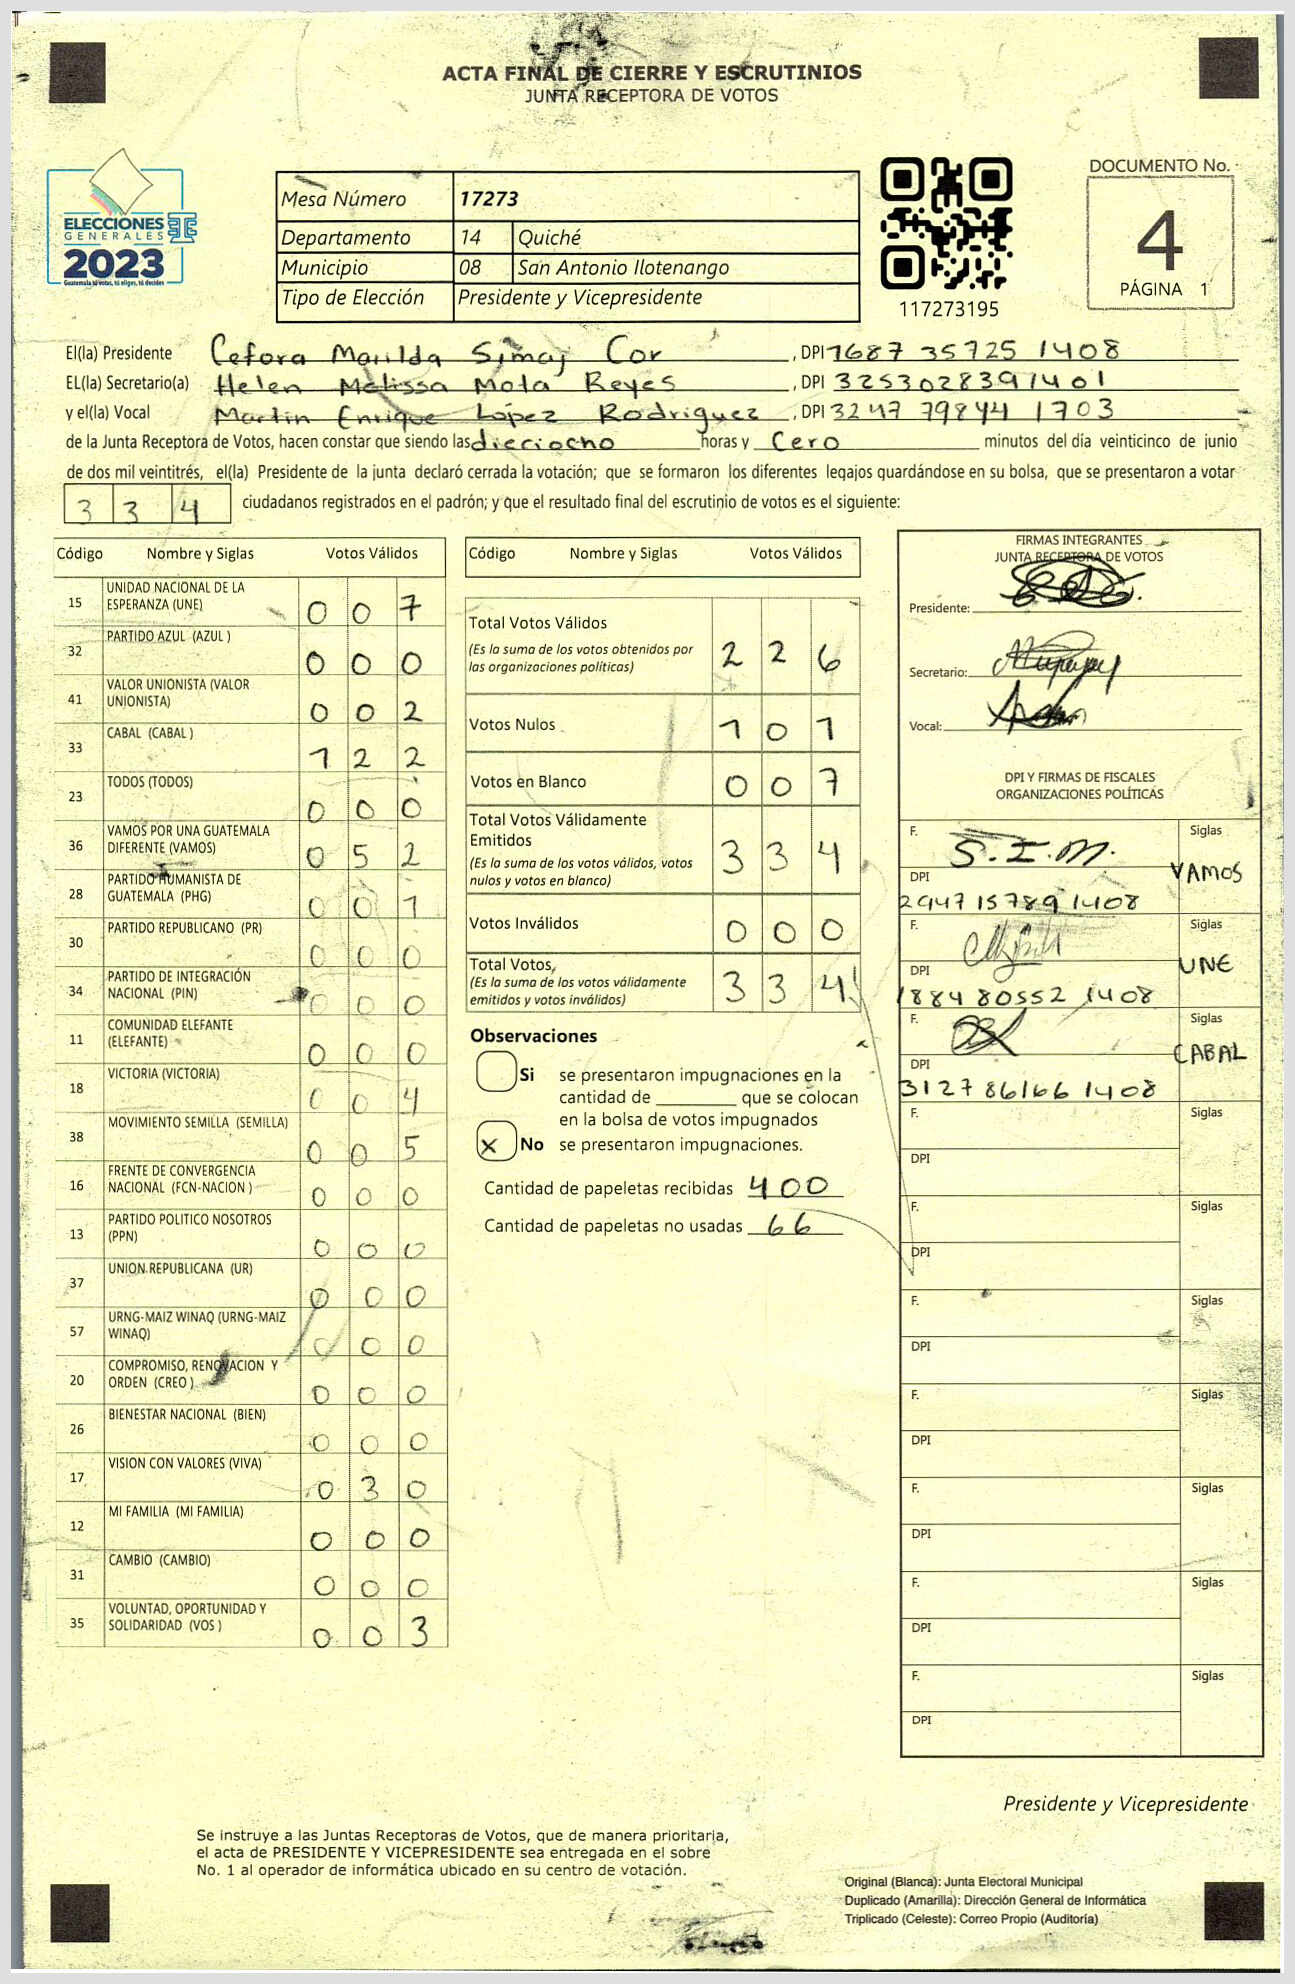 ACTA FINAL DE CIERRE Y ESCRUTINIOS
JUNTA RECEPTORA DE VOTOS
ELECCIONES
GENERALES
2023
Guatemala tú votas, tú eliges, tú decides
Mesa Número 17273
Departamento 14 Quiché
Municipio 08 San Antonio Ilotenango
Tipo de Elección Presidente y Vicepresidente
117273195
DOCUMENTO No.
4
PÁGINA 1
El(la) Presidente Cefora Marilda Simaj Cor , DPI 1687 35725 1408
EL(la) Secretario(a) Helen Melissa Mota Reyes , DPI 3253028391401
y el(la) Vocal Martin Enrique López Rodriguez , DPI 3247 79844 1703
de la Junta Receptora de Votos, hacen constar que siendo las dieciocho horas y Cero minutos del día veinticinco de junio
de dos mil veintitrés, el(la) Presidente de la junta declaró cerrada la votación; que se formaron los diferentes legajos guardándose en su bolsa, que se presentaron a votar
3 3 4 ciudadanos registrados en el padrón; y que el resultado final del escrutinio de votos es el siguiente:
Código Nombre y Siglas Votos Válidos
15 UNIDAD NACIONAL DE LA ESPERANZA (UNE) 0 0 7
32 PARTIDO AZUL (AZUL ) 0 0 0
41 VALOR UNIONISTA (VALOR UNIONISTA) 0 0 2
33 CABAL (CABAL ) 1 2 2
23 TODOS (TODOS) 0 0 0
36 VAMOS POR UNA GUATEMALA DIFERENTE (VAMOS) 0 5 2
28 PARTIDO HUMANISTA DE GUATEMALA (PHG) 0 0 1
30 PARTIDO REPUBLICANO (PR) 0 0 0
34 PARTIDO DE INTEGRACIÓN NACIONAL (PIN) 0 0 0
11 COMUNIDAD ELEFANTE (ELEFANTE) 0 0 0
18 VICTORIA (VICTORIA) 0 0 4
38 MOVIMIENTO SEMILLA (SEMILLA) 0 0 5
16 FRENTE DE CONVERGENCIA NACIONAL (FCN-NACION ) 0 0 0
13 PARTIDO POLITICO NOSOTROS (PPN) 0 0 0
37 UNION REPUBLICANA (UR) 0 0 0
57 URNG-MAIZ WINAQ (URNG-MAIZ WINAQ) 0 0 0
20 COMPROMISO, RENOVACION Y ORDEN (CREO ) 0 0 0
26 BIENESTAR NACIONAL (BIEN) 0 0 0
17 VISION CON VALORES (VIVA) 0 3 0
12 MI FAMILIA (MI FAMILIA) 0 0 0
31 CAMBIO (CAMBIO) 0 0 0
35 VOLUNTAD, OPORTUNIDAD Y SOLIDARIDAD (VOS ) 0 0 3
Código Nombre y Siglas Votos Válidos
Total Votos Válidos 2 2 6
(Es la suma de los votos obtenidos por
las organizaciones políticas)
Votos Nulos 1 0 1
Votos en Blanco 0 0 7
Total Votos Válidamente
Emitidos 3 3 4
(Es la suma de los votos válidos, votos
nulos y votos en blanco)
Votos Inválidos 0 0 0
Total Votos,
(Es la suma de los votos válidamente
emitidos y votos inválidos) 3 3 4
Observaciones
Si se presentaron impugnaciones en la
cantidad de ________ que se colocan
en la bolsa de votos impugnados
X No se presentaron impugnaciones.
Cantidad de papeletas recibidas 400
Cantidad de papeletas no usadas 66
FIRMAS INTEGRANTES
JUNTA RECEPTORA DE VOTOS
Presidente:
Secretario:
Vocal:
DPI Y FIRMAS DE FISCALES
ORGANIZACIONES POLÍTICAS
F. S.I.M. Siglas
VAMOS
DPI
2947 15789 1408
F. Siglas
UNE
DPI
1884 80552 1408
F. Siglas
CABAL
DPI
3127 86166 1408
F. Siglas
DPI
F. Siglas
DPI
F. Siglas
DPI
F. Siglas
DPI
F. Siglas
DPI
F. Siglas
DPI
F. Siglas
DPI
Presidente y Vicepresidente
Se instruye a las Juntas Receptoras de Votos, que de manera prioritaria,
el acta de PRESIDENTE Y VICEPRESIDENTE sea entregada en el sobre
No. 1 al operador de informática ubicado en su centro de votación.
Original (Blanca): Junta Electoral Municipal
Duplicado (Amarilla): Dirección General de Informática
Triplicado (Celeste): Correo Propio (Auditoría)